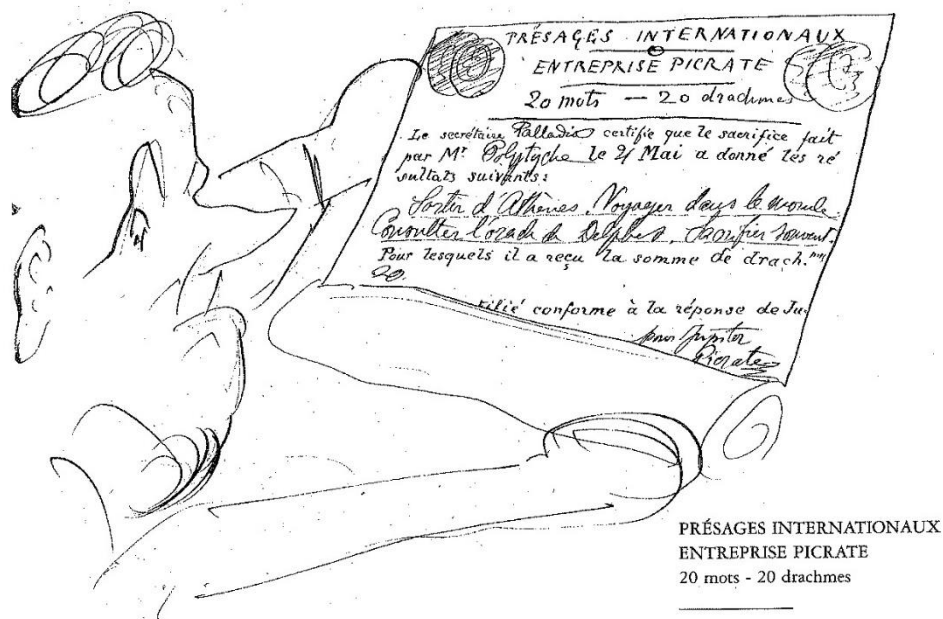 PRÉSAGES INTERNATIONAUX
ENTREPRISE PICRATE
20 mots — 20 drachmes
Le secrétaire Palladis certifie que le sacrifice fait
par Mr Polytyche le 21 Mai a donné les ré
sultats suivants:
Sortir d'Athènes. Voyager dans le monde
Consulter l'oracle de Delphes. Sacrifier souvent.
Pour lesquels il a reçu la somme de drach.mes
20.
tifié conforme à la réponse de Ju-
pour Jupiter
Picrate
PRÉSAGES INTERNATIONAUX
ENTREPRISE PICRATE
20 mots - 20 drachmes